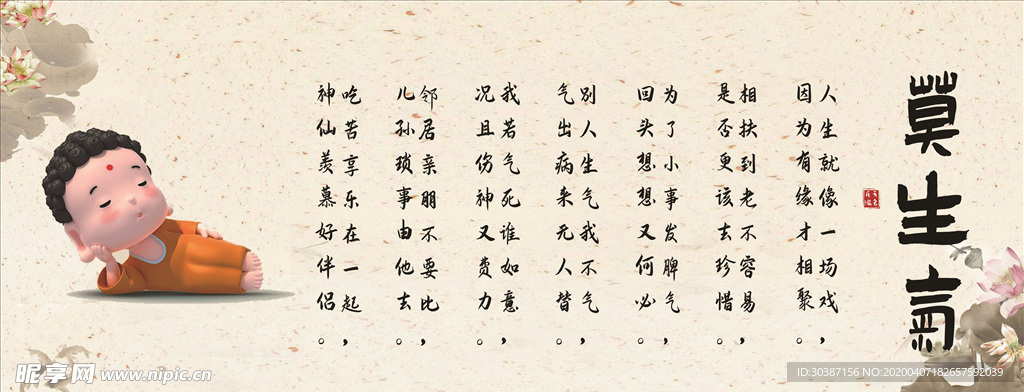 莫生氣
人生就像一场戏，
因为有缘才相聚。
相扶到老不容易，
是否更该去珍惜。
为了小事发脾气，
回头想想又何必。
别人生气我不气，
气出病来无人替。
我若气死谁如意，
况且伤神又费力。
邻居亲朋不要比，
儿孙琐事由他去。
吃苦享乐在一起，
神仙羡慕好伴侣。
昵享网 www.nipic.cn
ID:30387156 NO:20200407182657592039